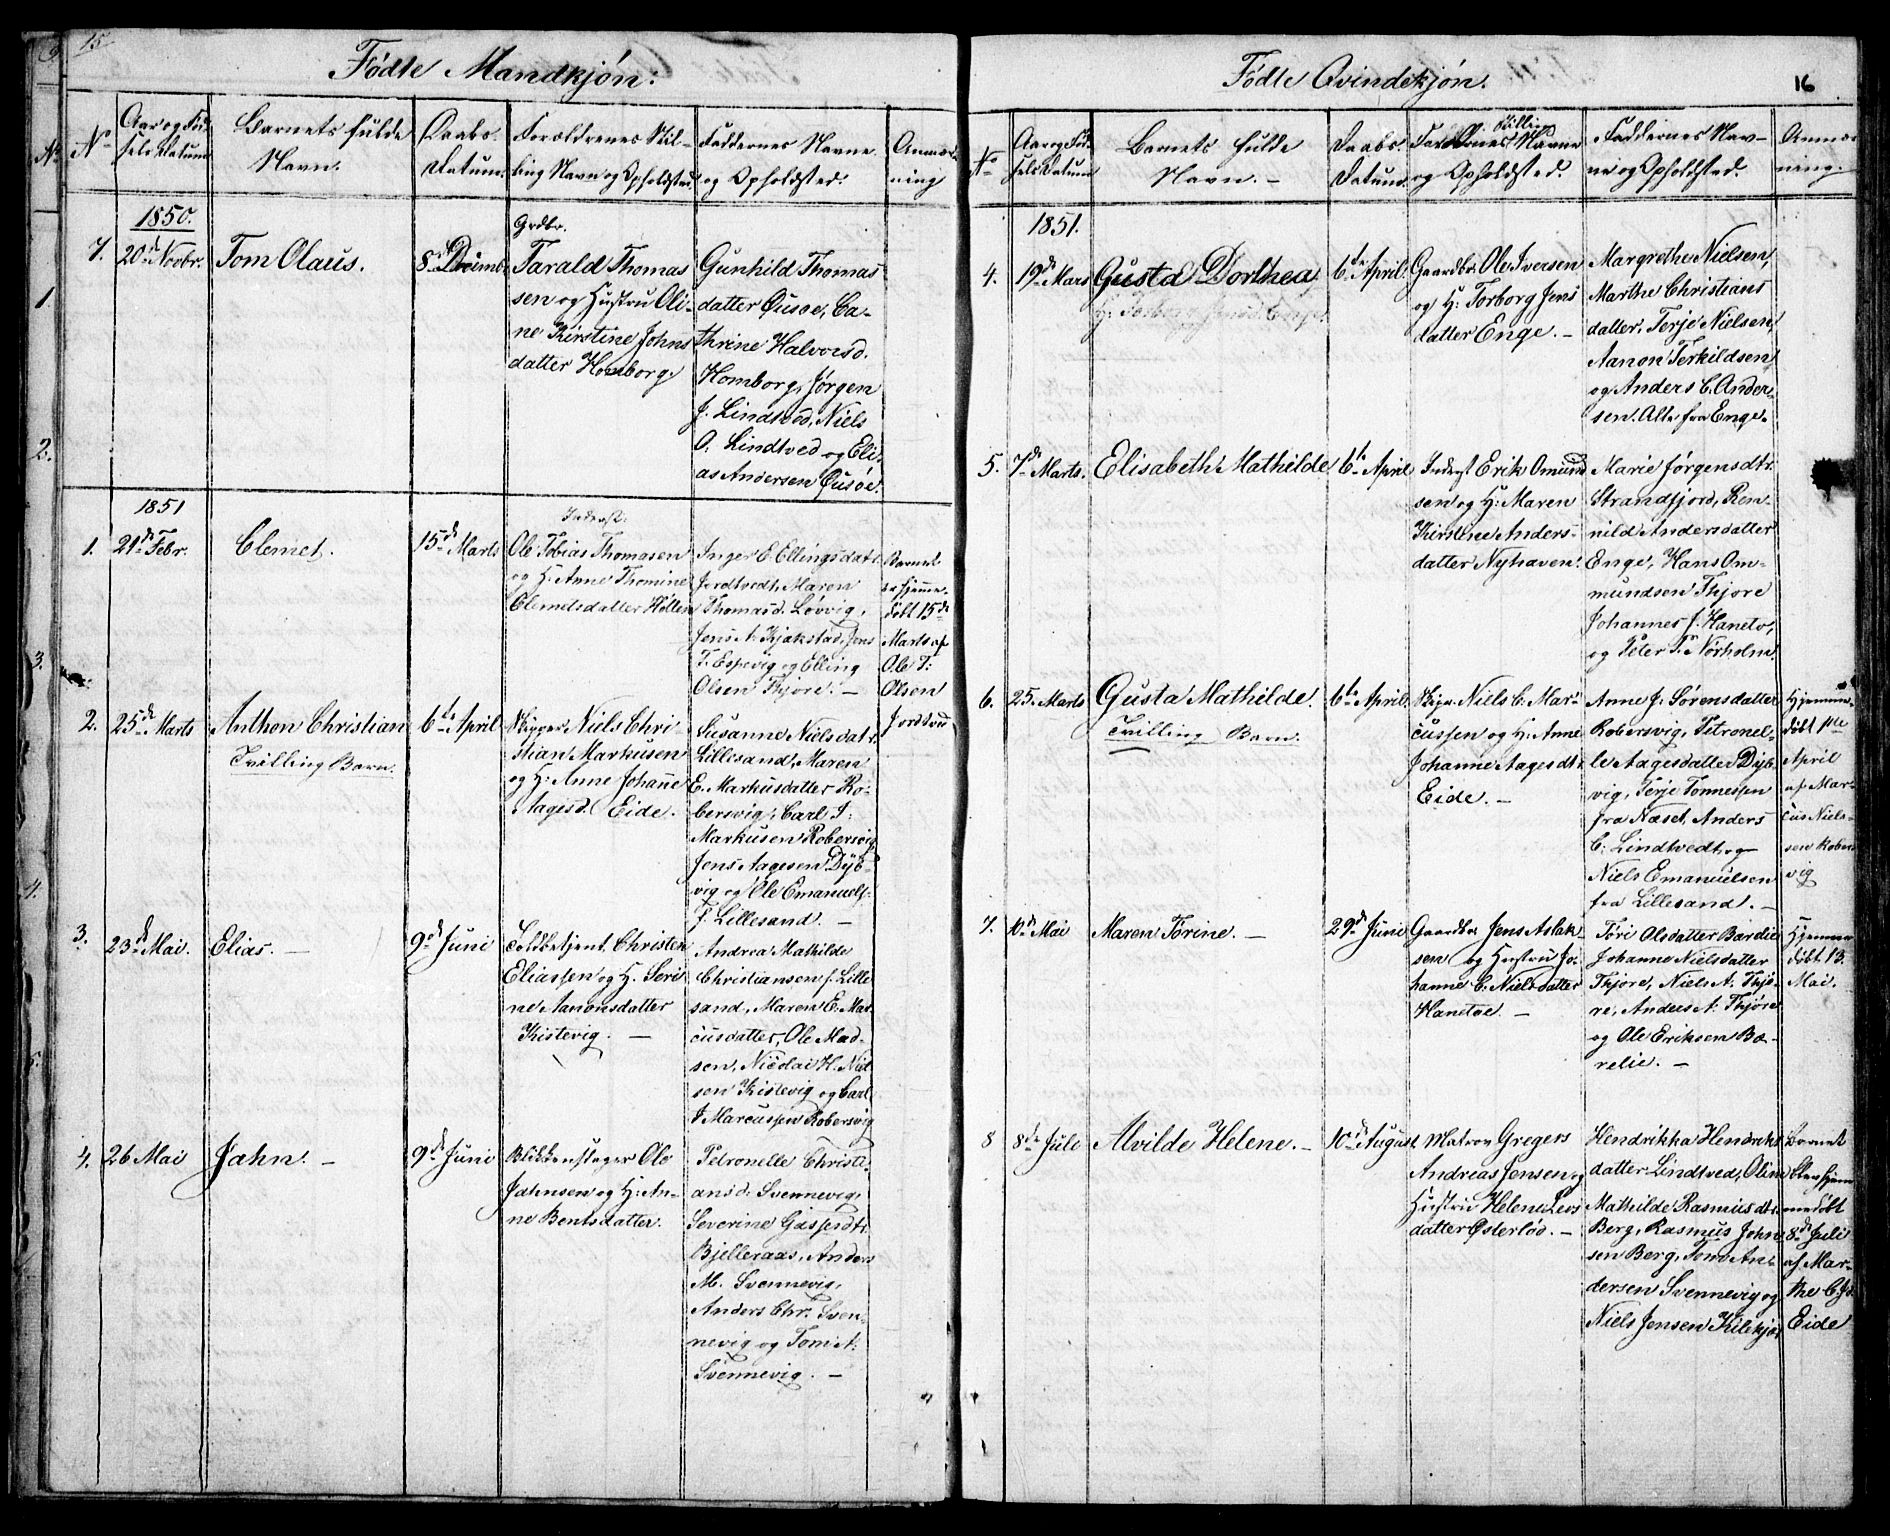 15
Fødte Mandkjøn:
No
Aar og Fød-
sels Datum
Barnets fulde
Navn.
Daabs-
Datum.
Forældrenes Stil-
ling Navn og Opholdsted
Faddernes Navne
og Opholdsted.
Anmær-
ning
1850.
7. 20d Novbr.
Tom Olaus.
8d Decmbr
Grdbr.
Tarald Thomas
sen og Hustru Oli-
ne Kirstine Johns
datter Homborg.
Gunhild Thomas
datter Øusøe, Ca-
thrine Halvorsd.
Homborg, Jørgen
J. Lindtved, Niels
O. Lindtved og Eli-
as Andersen Øusøe.
1851
1. 21d Febr.
Clemet.
15d Marts
Inderst.
Ole Tobias Thomasen
og H. Anne Thomine
Clemetsdatter Holten
Inger E Ellingsdatr.
Jordtvedt, Maren
Thomasd. Løvvig,
Jens A. Kjøkstad, Jens
T. Espevig og Elling
Olsen Thjore. —
Barnet
er hjemme-
døbt 15de
Marts af
Ole T:
Olsen
Jordtved
2. 25d Marts
Anthon Christian
Tvilling Barn.
6te April
Skipper Niels Chri-
stian Markusen
og H. Anne Johane
Aagesd. Eide.
Susanne Nielsdatr.
Lillesand, Maren
E. Markusdatter Ro-
bersvig, Carl I:
Markusen Robersvig
Jens Aagesen Dyb-
vig og Ole Emanuels-
s. Lillesand. —
3. 23d Mai.
Elias. —
9d Juni
Toldbetjent Christen
Eliassen og H. Seri-
ne Aanonsdatter
Kistevig. —
Andrea Mathilde
Christiansen f. Lille
sand, Maren E. Mar
cusdatter, Ole Mad-
sen, Nicolai H. Niel
sen Kistevig og Carl
I Marcussen Robersvig
4. 26 Mai
Jahn. —
9d Juni
Blikkenslager Ole
Jahnsen og H. An-
ne Bentsdatter.
Petronelle Christi-
ansd. Svennevig,
Severine Gasperdtr.
Bjelleraas, Anders
M. Svennevig,
Anders Chr. Sven-
nevig og Tom A:
Svennevig. —
Fødte Qvindekjøn.
16
No
Aar og Fød-
sels Datum
Barnets fulde
Navn. —
Daabs
Datum.
Forældrenes Stilling Navne
og Opholdsted.
Faddernes Nav-
ne og Opholdsted.
Anmær
ning.
1851.
4. 19d Mars
Gusta Dorthea,
6te April.
Gaardbr. Ole Iversen
og H: Torborg Jens
datter Enge. —
Margrethe Nielsen,
Marthe Christians
datter, Terje Nielsen,
Aanon Terkildsen
og Anders C. Ander-
sen. Alle fra Enge.
5. 7d Marts.
Elisabeth Mathilde
6te April
Inderst Erik Omund
sen og H: Maren
Kirstine Anders-
datter Nyhaven.
Marie Jørgensdtr.
Strandfjord, Ren-
nild Andersdatter
Enge, Hans Om-
mundsen Thjore
Johannes J. Hanetø,
og Peter P. Nørholm.
6. 25. Marts
Gusta Mathilde.
Tvilling Barn.
6te April.
Skipr. Niels C. Mar-
cussen og H: Anne
Johanne Aagesdtr.
Eide. —
Anne J. Sørensdatter
Robersvig, Petronel-
le Aagesdatter Dyb-
vig, Terje Tønnessen
fra Næset, Anders
C. Lindtvedt og
Niels Emanuelsen
fra Lillesand. —
Hjemme
døbt 1ste
April
af Mar-
cus Niels-
sen Robers
vig
7. 10d Mai
Maren Torine. —
29d Juni
Gaardbr Jens Aslak
sen og Hustru Jo-
hanne C. Nielsdatter
Hanetøe. —
Tøri Olsdatter Bærelie
Johanne Nielsdatter
Thjore, Niels A. Thjo-
re, Anders A. Thjøre
og Ole Eriksen Bæ-
relie. —
Hjemme
døbt 13.
Mai.
8 8de Juli
Alvilde Helene. —
10d August
Matros Gregers
Andreas Jensen og
Hustru Helene Lars
datter Østerlød. —
Hendrikka Hendriks
datter Lindtved, Oline
Mathilde Rasmusdtr.
Berg, Rasmus John
sen Berg, Tom An-
dersen Svennevig og
Niels Jensen Kilekjær
Barnet
blev hjem
medøbt
8d Juli
af Mar-
the C.
Eide